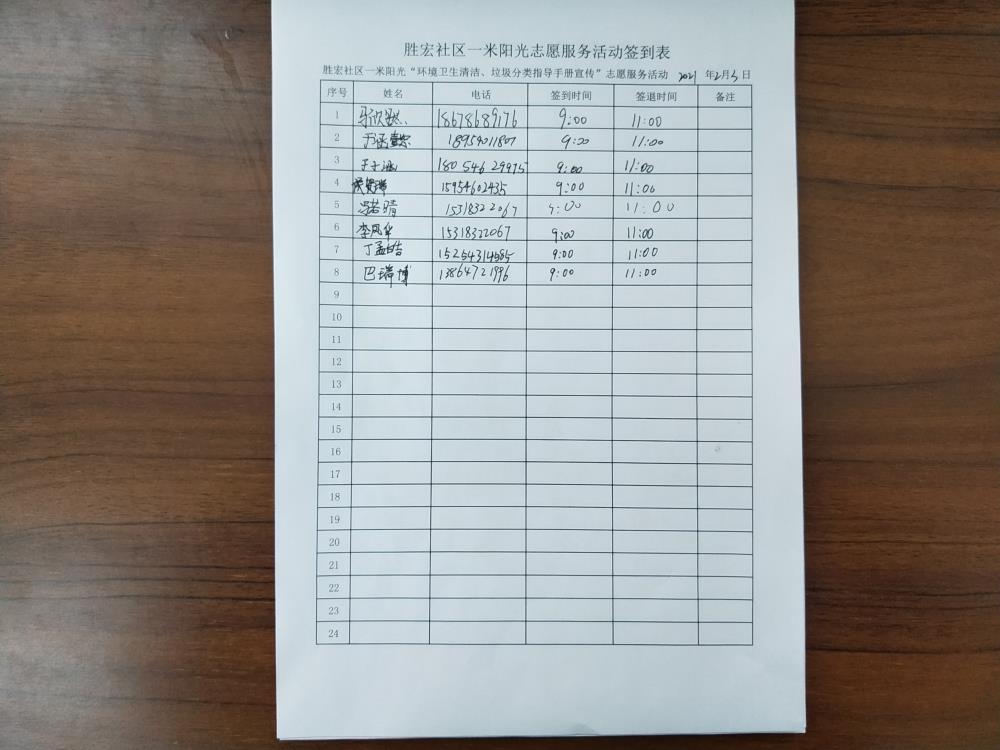 胜宏社区一米阳光志愿服务活动签到表
胜宏社区一米阳光“环境卫生清洁、垃圾分类指导手册宣传”志愿服务活动 2021 年2月5日
序号 姓名 电话 签到时间 签退时间 备注
1 18678689176 9:00 11:00
2 18954011807 9:00 11:00
3 于子涵 18054629975 9:00 11:00
4 15954602435 9:00 11:00
5 冯若晴 15318322067 9:00 11:00
6 李凤华 15318322067 9:00 11:00
7 丁孟皓 15254314585 9:00 11:00
8 巴瑞博 13864721996 9:00 11:00
9
10
11
12
13
14
15
16
17
18
19
20
21
22
23
24